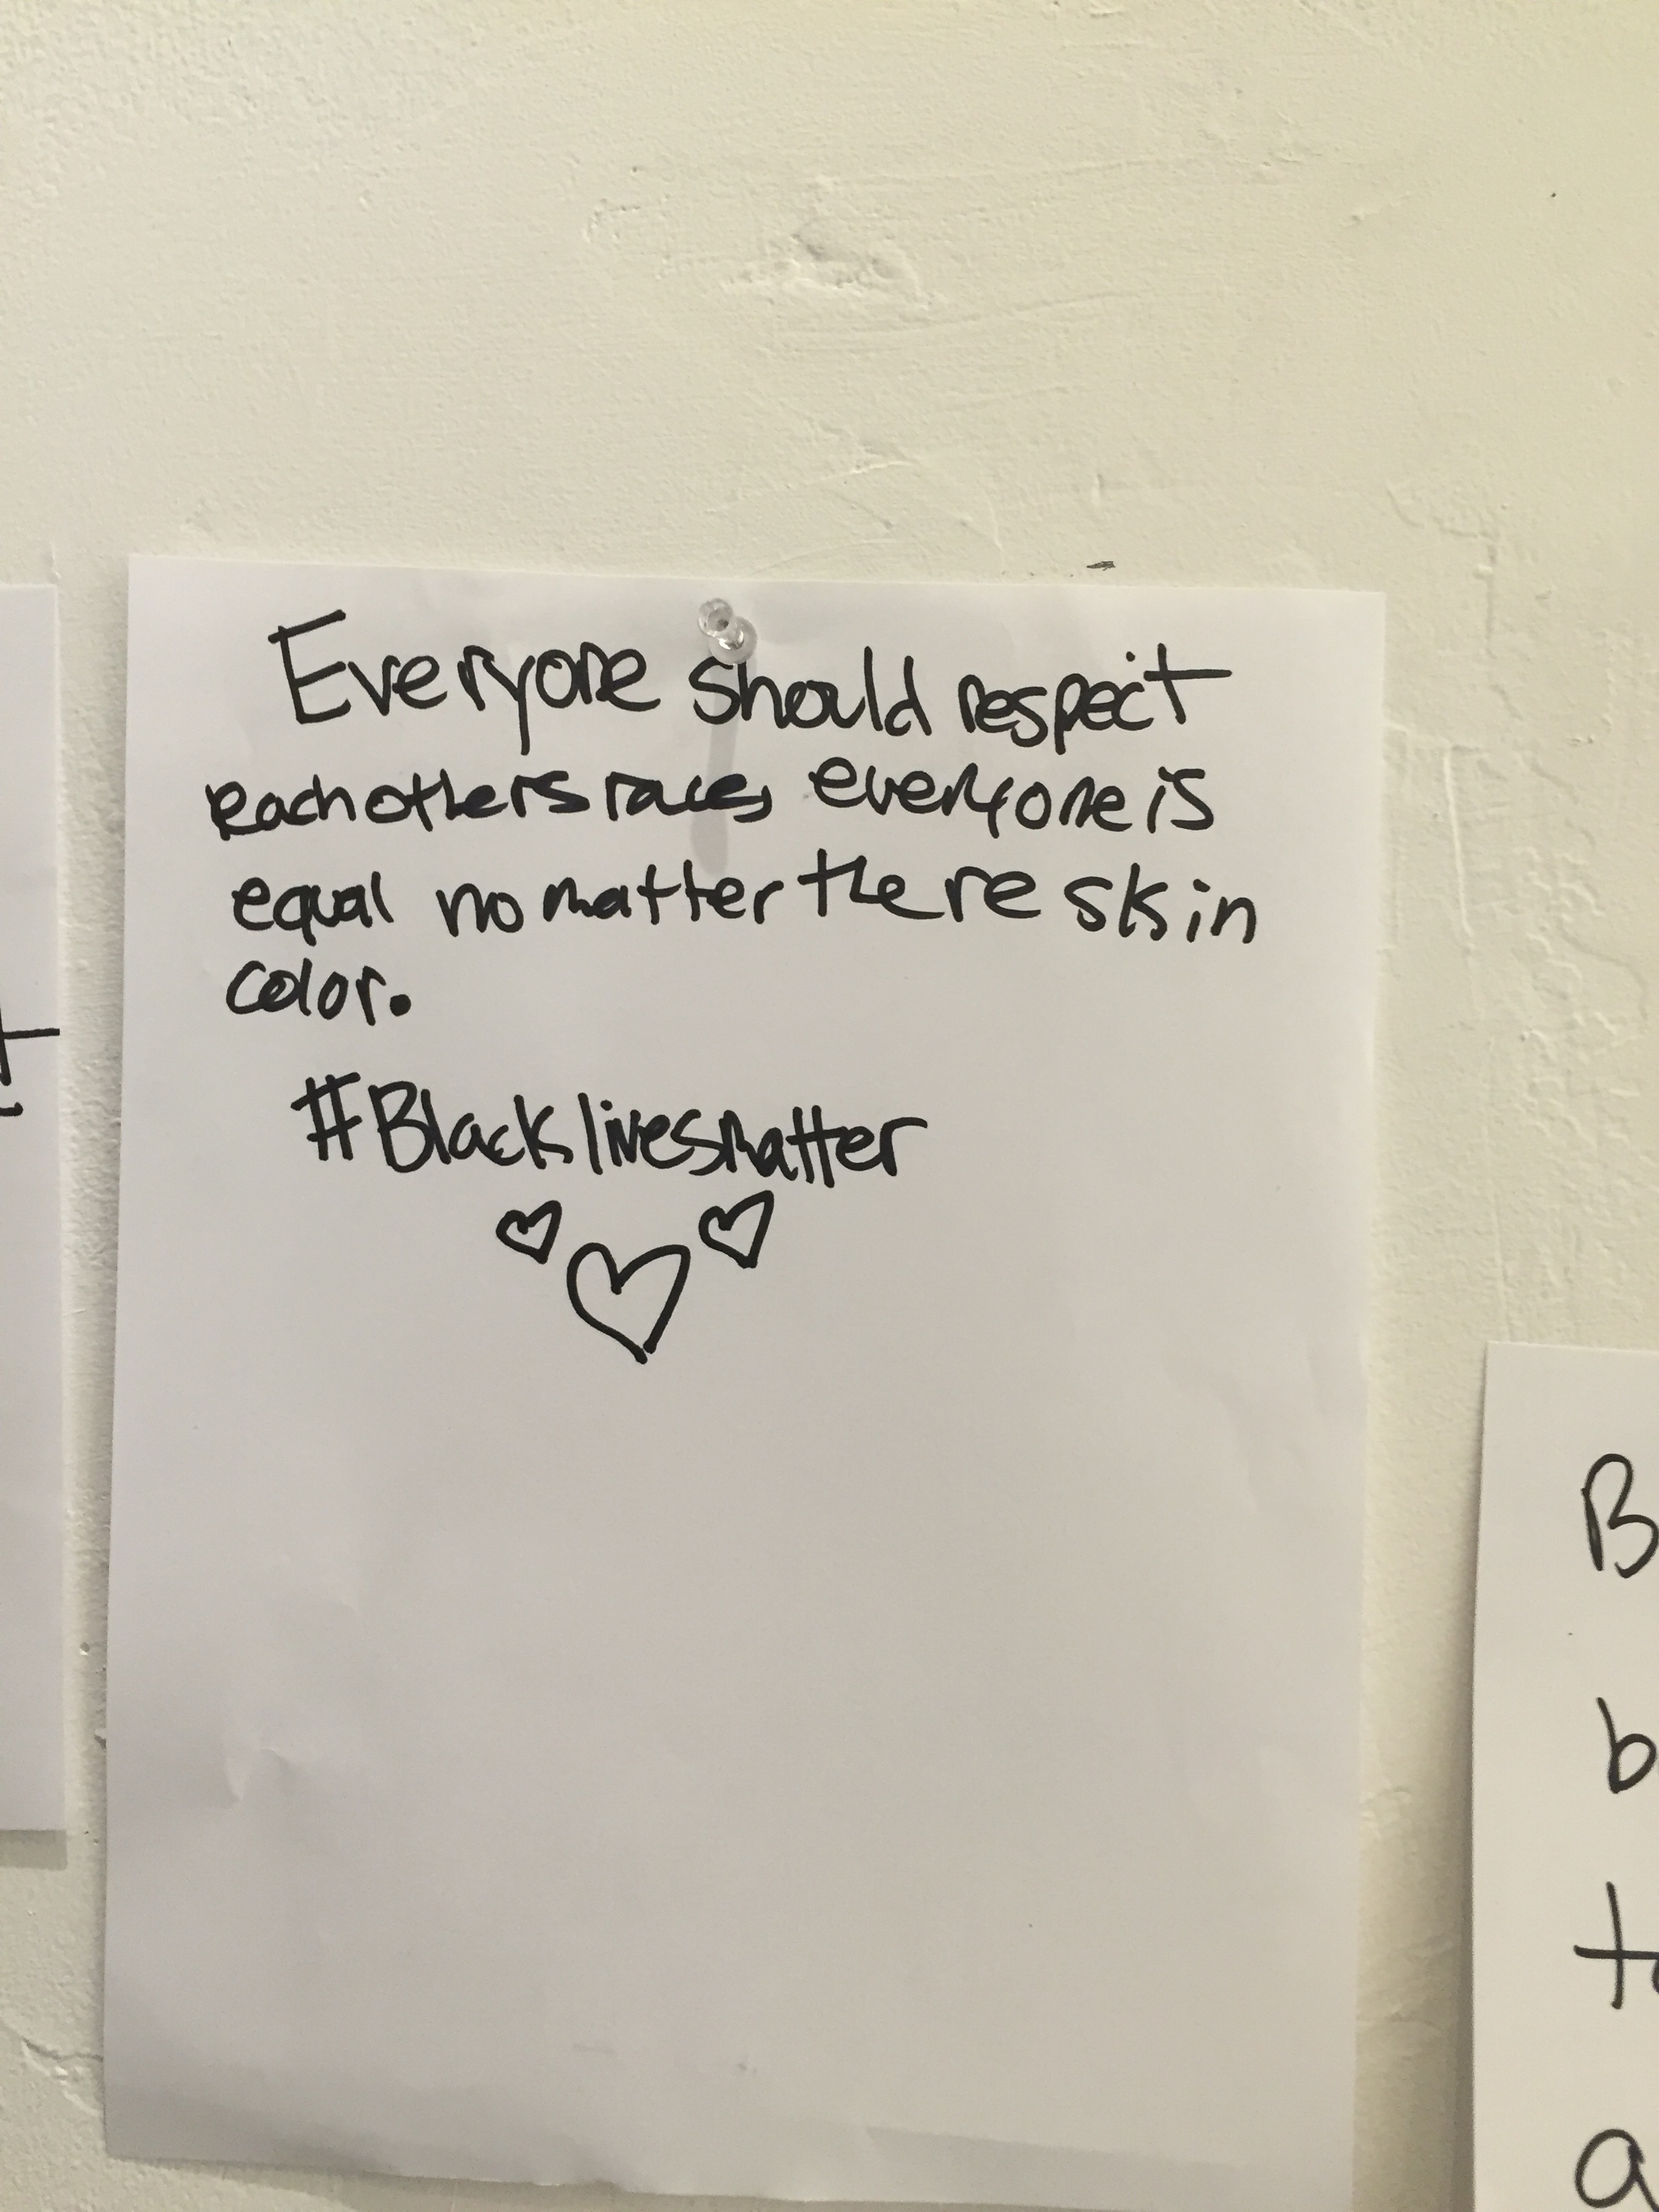 Everyone should respect
eachothers races, everyone is
equal no matter there skin
color.
#Blacklivesmatter
B
b
to
a